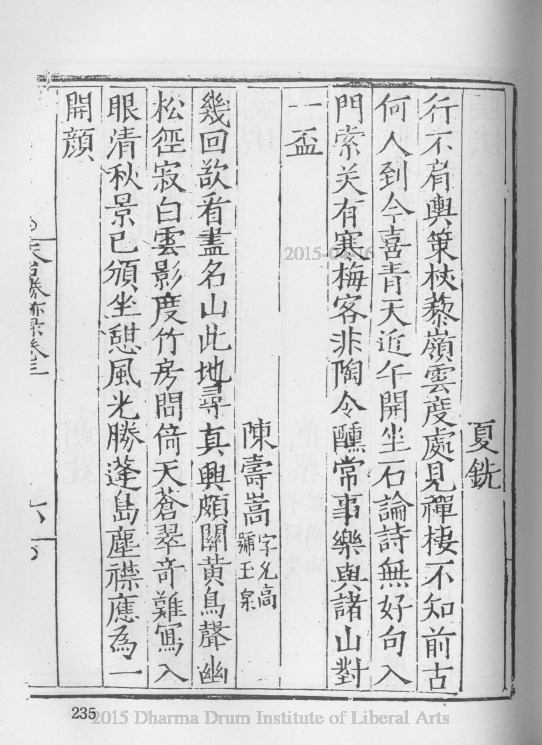 夏銑
行不肩輿策杖藜嶺雲度處見禪棲不知前古
何人到今喜青天近午開坐石論詩無好句入
門索关有寒梅客非陶令醺常事樂與諸山對
一盃
陳壽嵩字允高號玉泉
幾回欲看盡名山此地尋真興頗關黃鳥聲幽
松徑寂白雲影度竹房間倚天蒼翠奇難寫入
眼清秋景已頒坐憩風光勝蓬島塵襟應為一
開顏
天台勝跡录卷三
2015-04-16
235
2015 Dharma Drum Institute of Liberal Arts